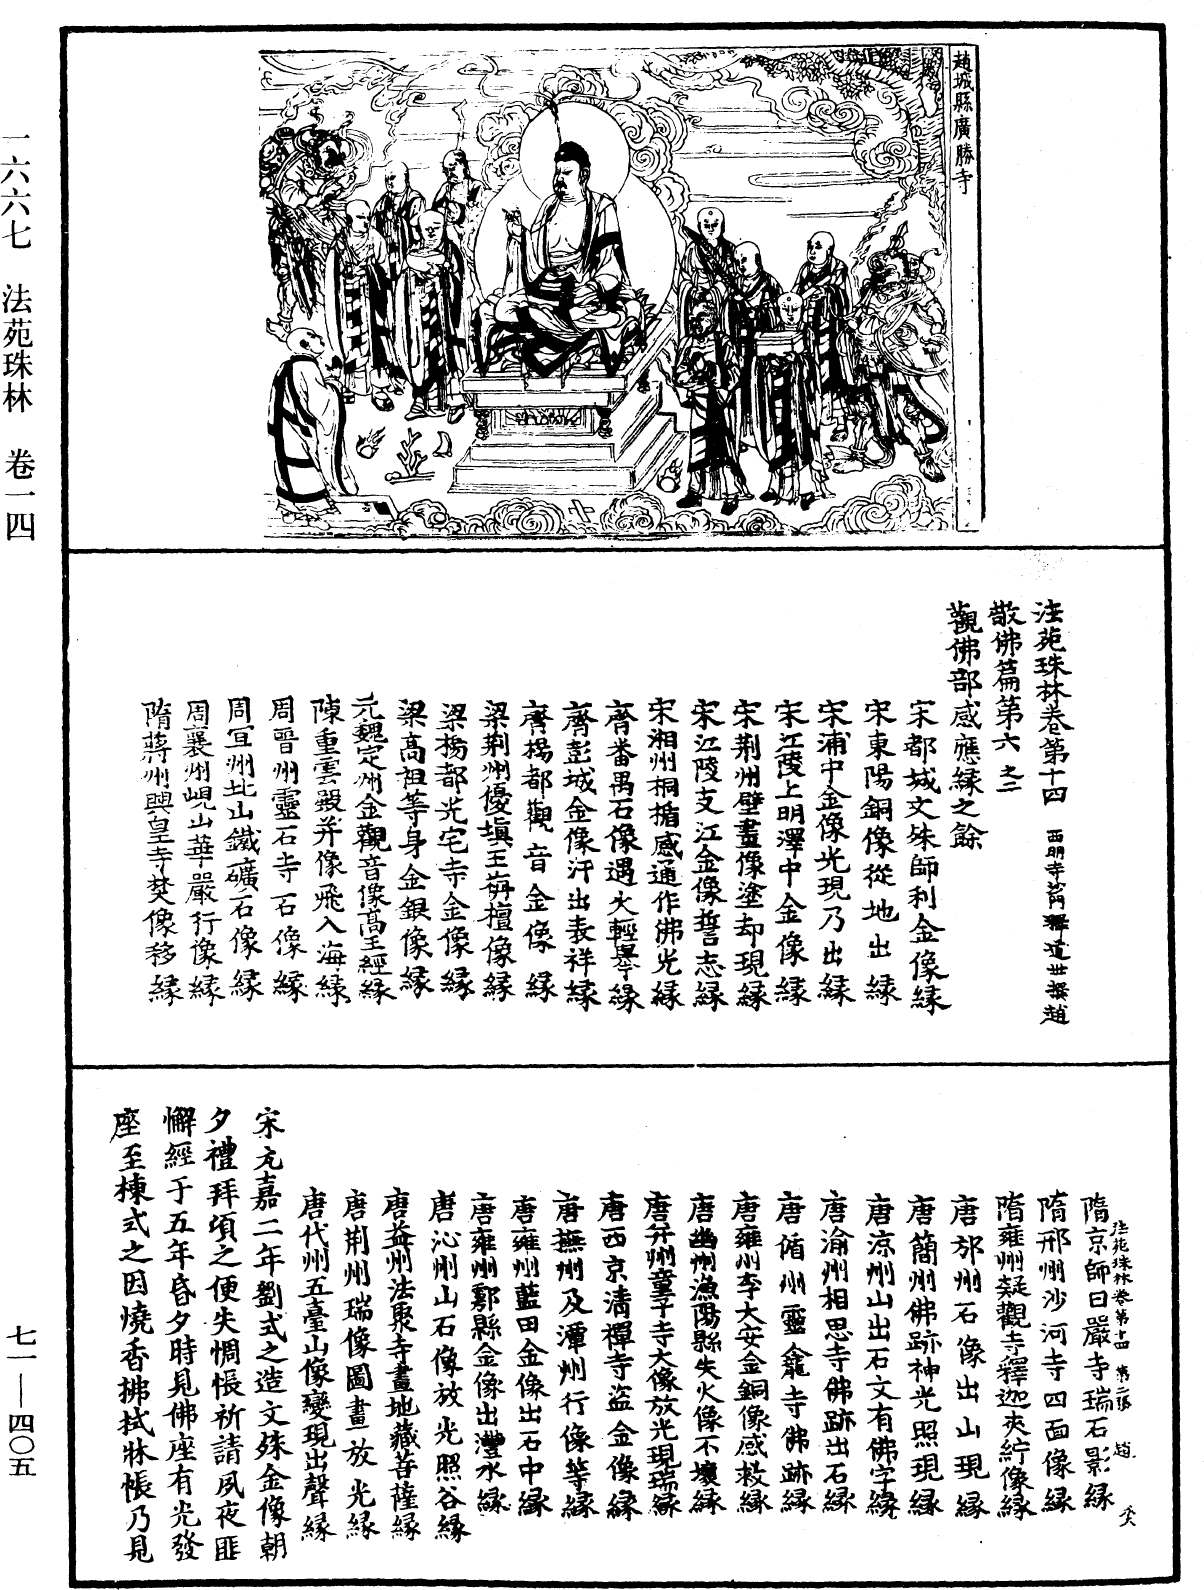 一六六七　法苑珠林　卷一四
七一—四〇五
趙城縣廣勝寺
法苑珠林卷第十四　西明寺沙門釋道世撰　趙
敬佛篇第六之二
觀佛部感應緣之餘
宋都城文殊師利金像緣
宋東陽銅像從地出緣
宋浦中金像光現乃出緣
宋江陵上明澤中金像緣
宋荆州壁畫像塗却現緣
宋江陵支江金像誓志緣
宋湘州桐楯感通作佛光緣
齊番禺石像遇火輕舉緣
齊彭城金像汗出表祥緣
齊揚都觀音金像緣
梁荆州優填王栴檀像緣
梁楊都光宅寺金像緣
梁高祖等身金銀像緣
元魏定州金觀音像高王經緣
陳重雲殿并像飛入海緣
周晉州靈石寺石像緣
周宜州北山鐵礦石像緣
周襄州峴山華嚴行像緣
隋蔣州興皇寺焚像移緣
法苑珠林卷第十四　第二張　趙
隋京師日嚴寺瑞石影緣
隋邢州沙河寺四面像緣
隋雍州疑觀寺釋迦夾紵像緣
唐邡州石像出山現緣
唐簡州佛跡神光照現緣
唐涼州山出石文有佛字緣
唐渝州相思寺佛跡出石緣
唐循州靈龕寺佛跡緣
唐雍州李大安金銅像感救緣
唐幽州漁陽縣失火像不壞緣
唐并州童子寺大像放光現瑞緣
唐西京清禪寺盜金像緣
唐撫州及潭州行像等緣
唐雍州藍田金像出石中緣
唐雍州鄠縣金像出灃水緣
唐沁州山石像放光照谷緣
唐益州法聚寺畫地藏菩薩緣
唐荆州瑞像圖畫放光緣
唐代州五臺山像變現出聲緣
宋元嘉二年劉式之造文殊金像朝
夕禮拜頃之便失惆悵祈請夙夜匪
懈經于五年昏夕時見佛座有光發
座至棟式之因燒香拂拭牀帳乃見